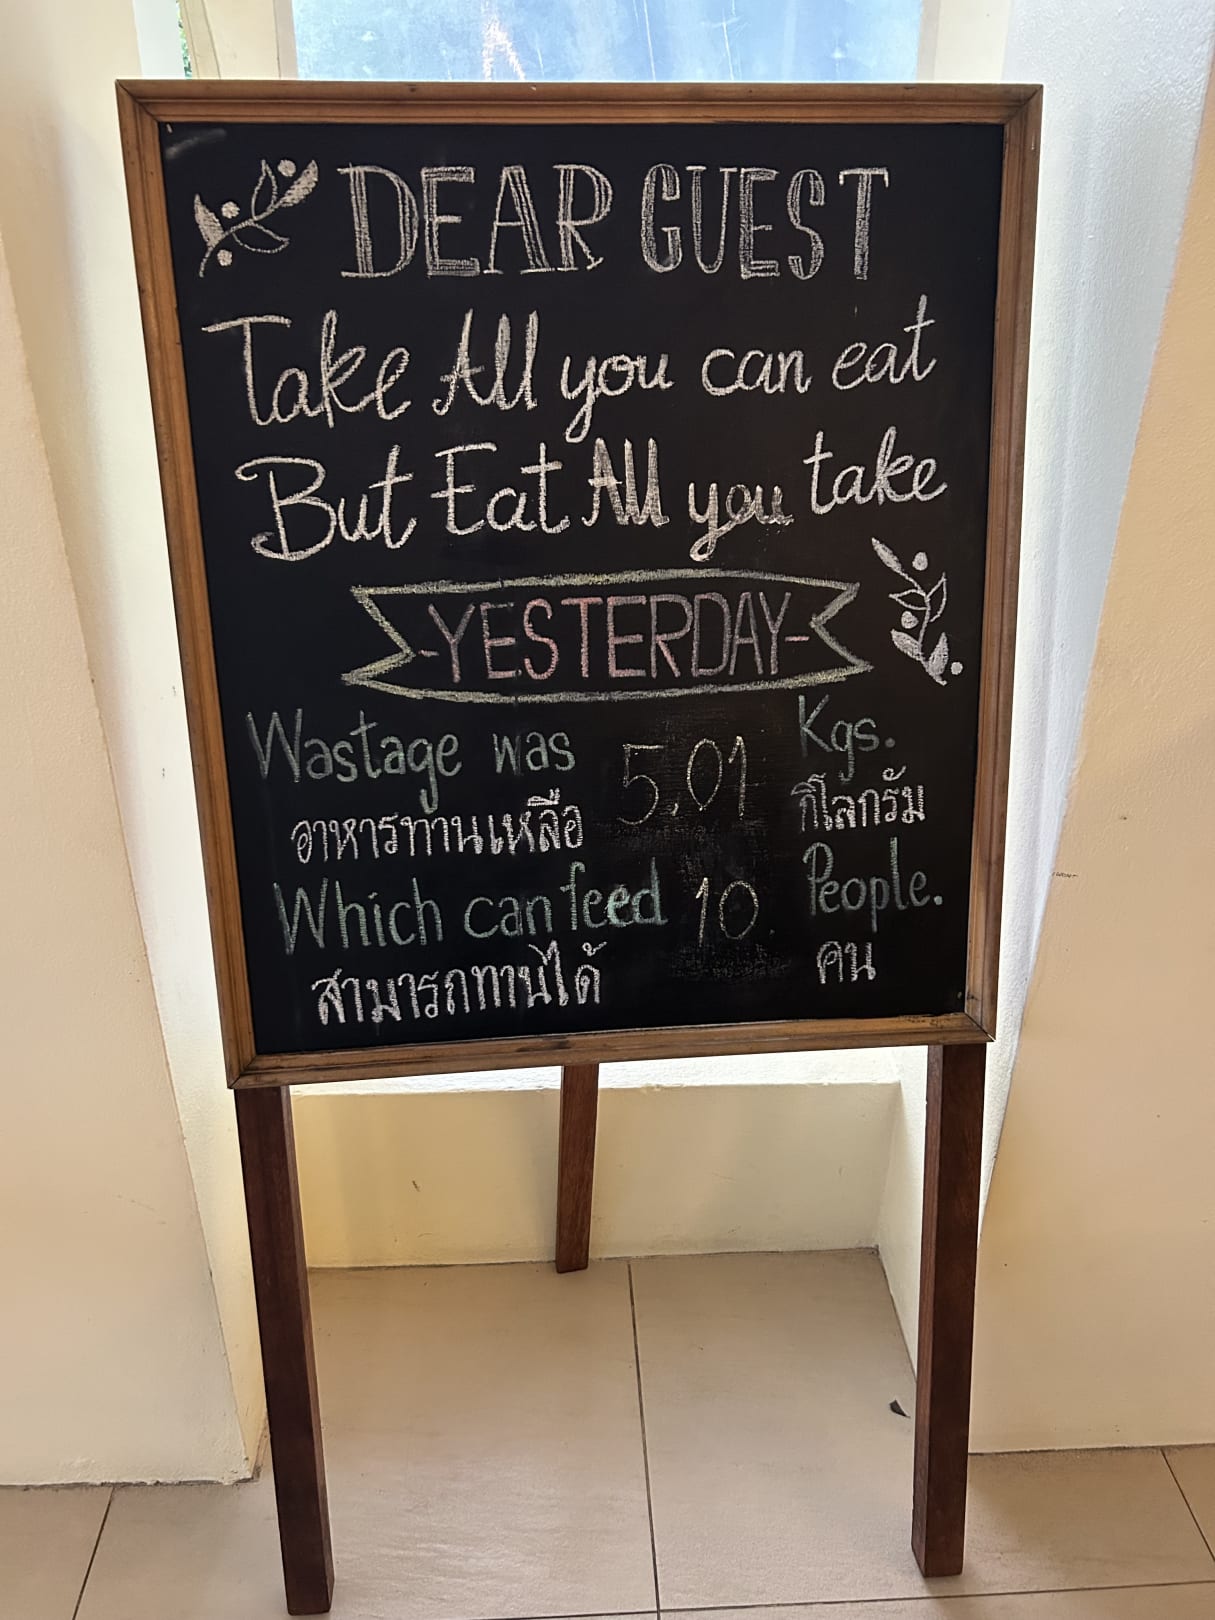 DEAR GUEST
Take All you can eat
But Eat All you take
-YESTERDAY-
Wastage was 5.01 Kgs.
อาหารทานเหลือ กิโลกรัม
Which can feed 10. People.
สามารถทานได้ คน